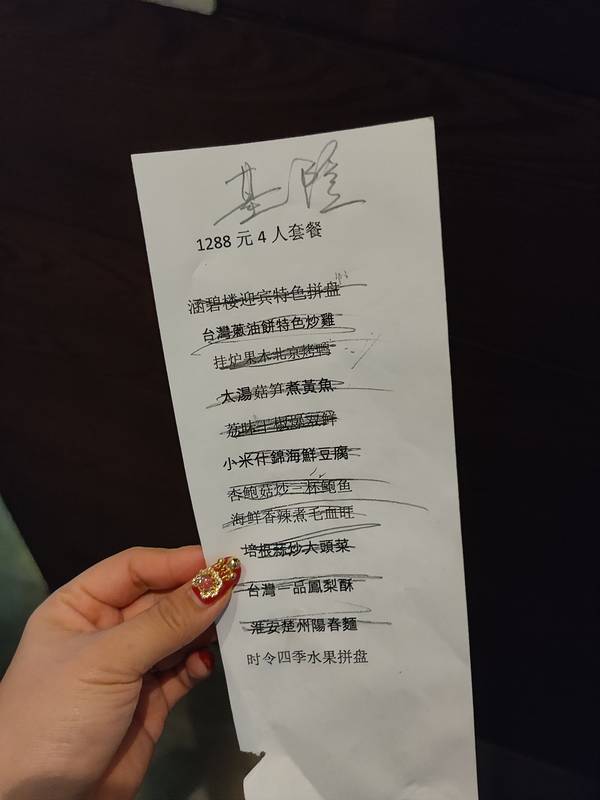 基隆
1288 元 4 人套餐
涵碧楼迎宾特色拼盘
台灣蔥油餅特色炒雞
挂炉果木北京烤鸭
太湯菇笋煮黃魚
小米什錦海鮮豆腐
杏鲍菇炒三杯鲍鱼
海鲜香辣煮毛血旺
培根蒜炒大頭菜
台灣一品鳳梨酥
淮安楚州陽春麵
时令四季水果拼盘